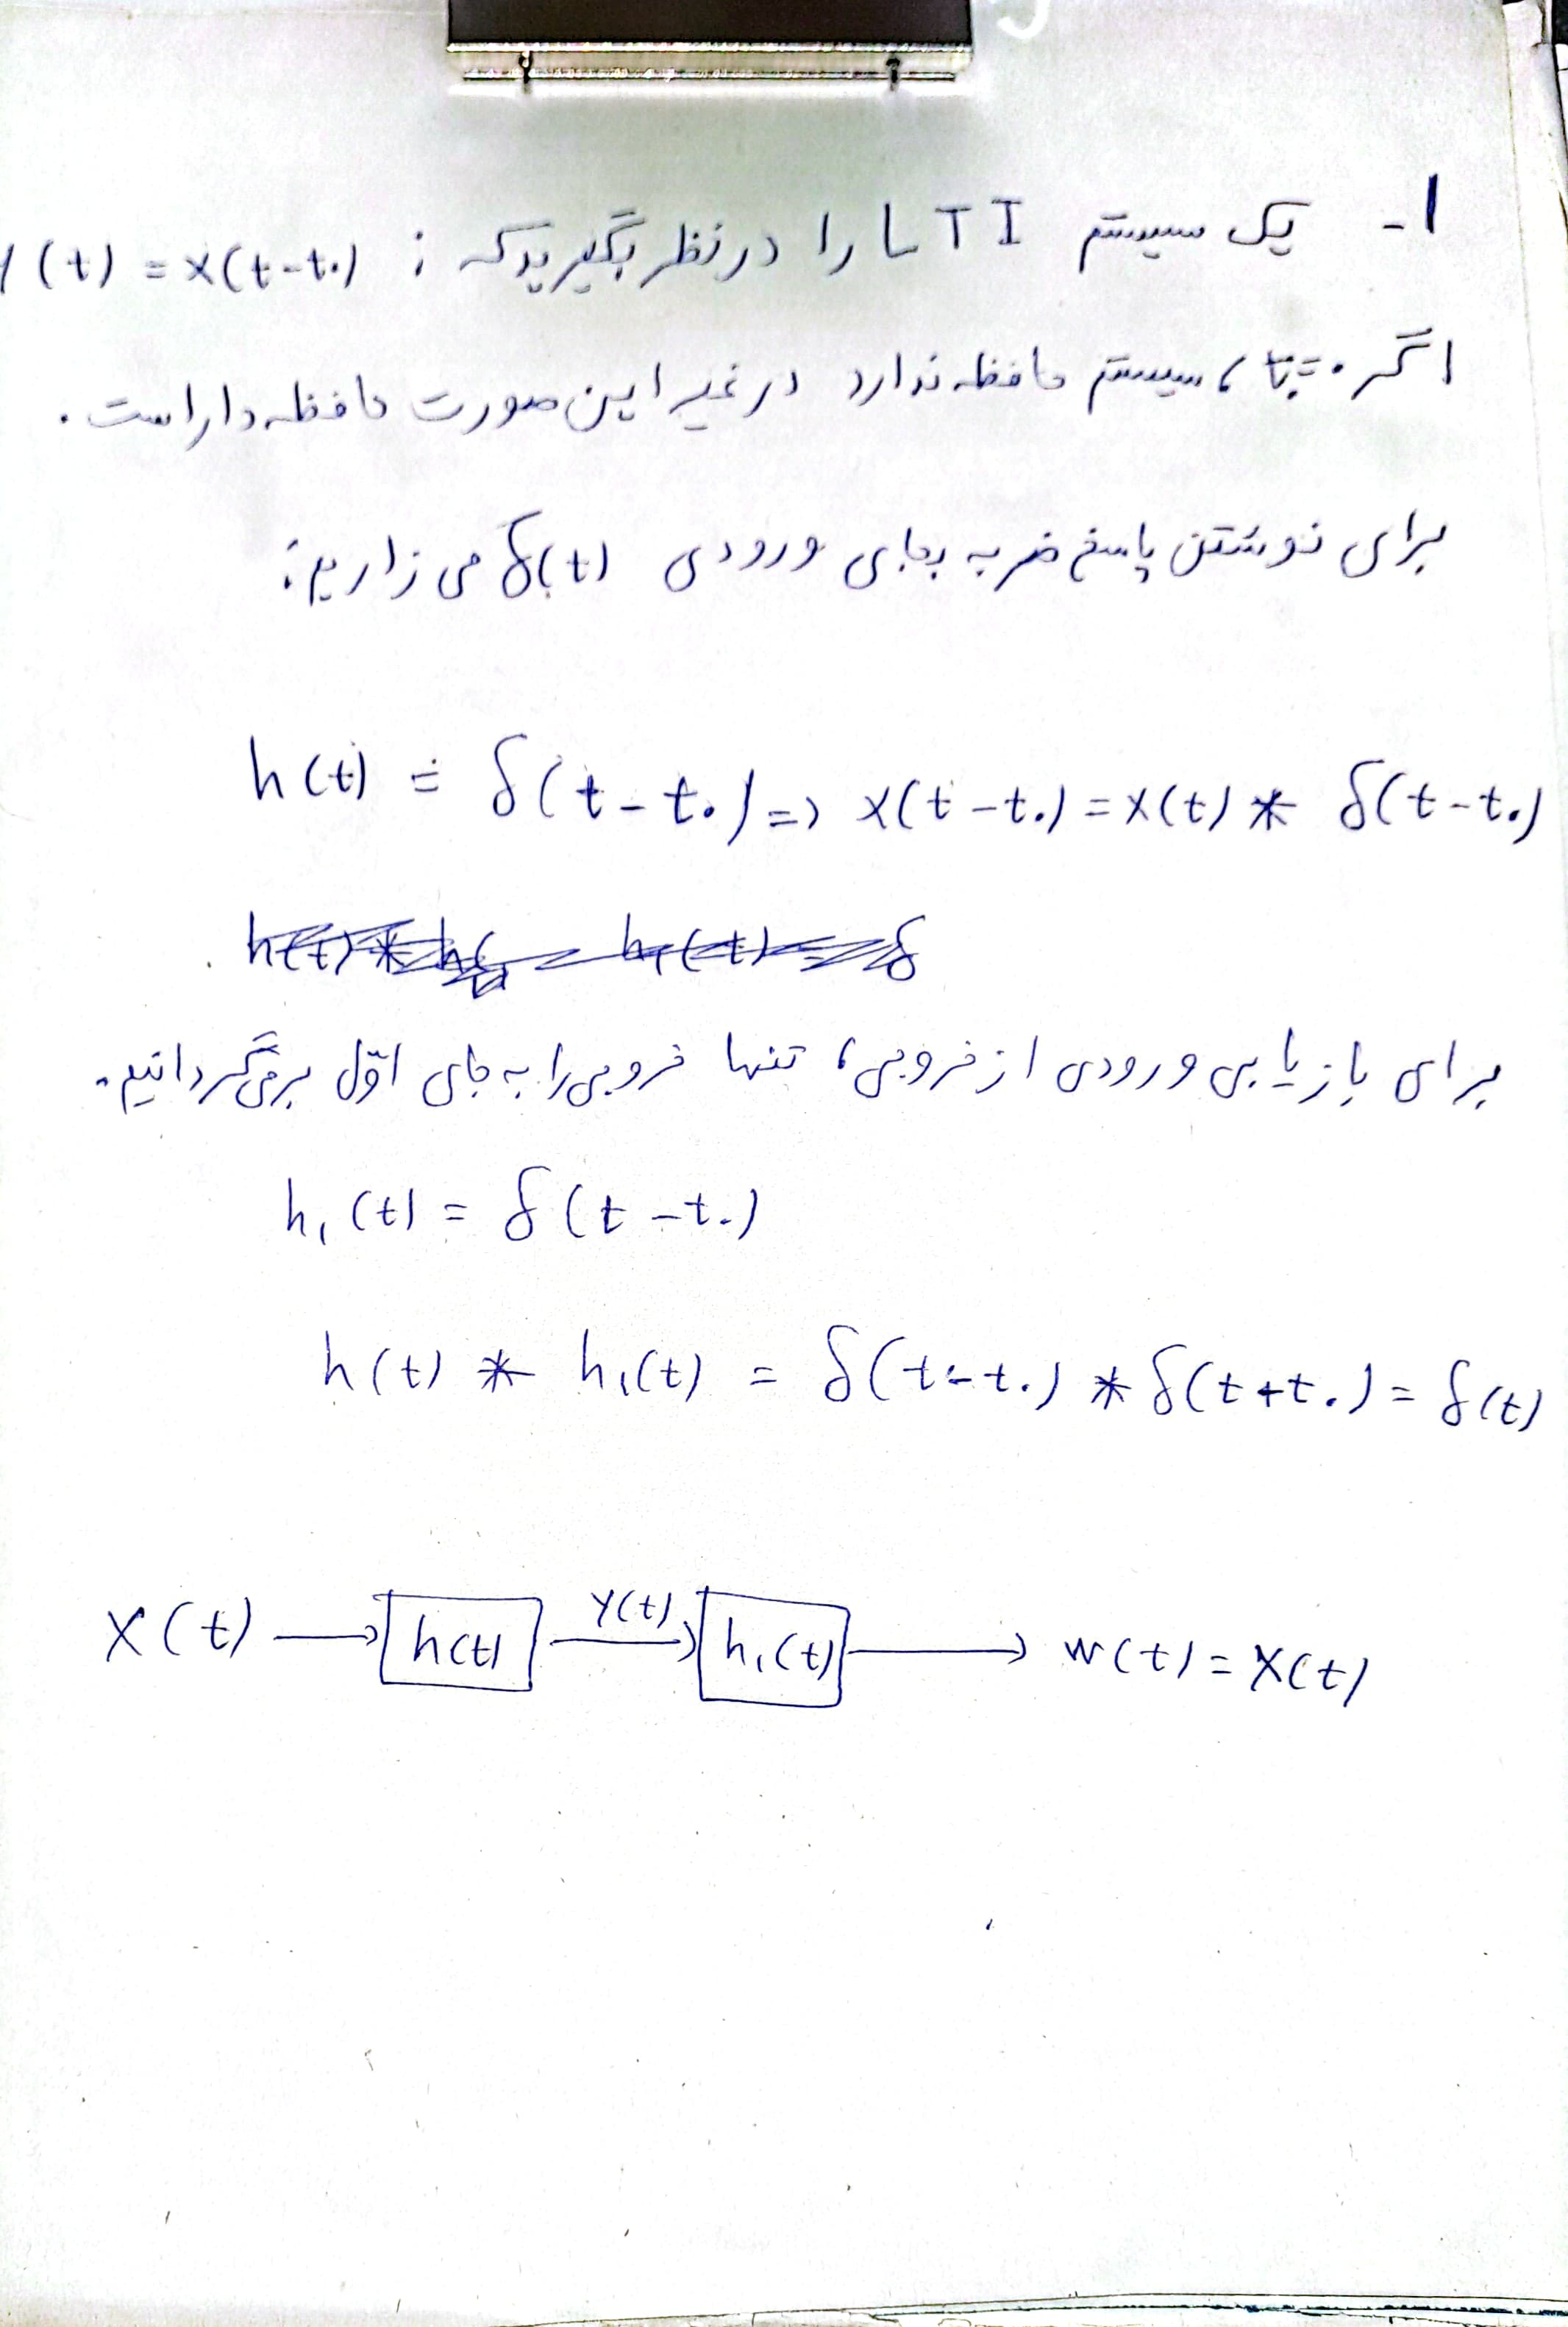 ۱- یک سیستم LTI را در نظر بگیرید که : (t) = x(t-t۰)
اگر t۰=۰ ، سیستم حافظه ندارد در غیر این صورت حافظه دار است .
برای نوشتن پاسخ ضربه بجای ورودی δ(t) می زاریم :
h(t) = δ(t-t۰) => x(t-t۰) = x(t) * δ(t-t۰)
برای بازیابی ورودی از خروجی، تنها خروجی را به جای اوّل برمی گردانیم.
h₁(t) = δ(t-t۰)
h(t) * h₁(t) = δ(t-t۰) * δ(t+t۰) = δ(t)
x(t) → h(t) y(t) → h₁(t) → w(t) = x(t)